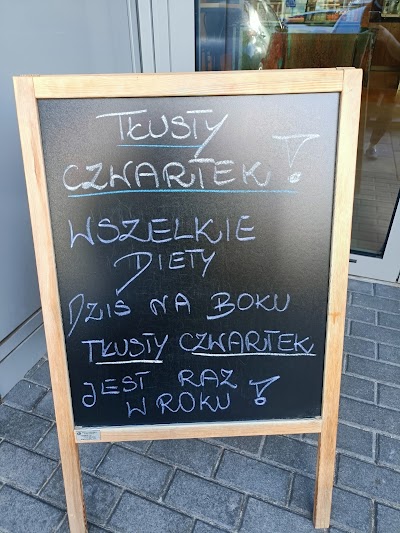 TŁUSTY
CZWARTEK!
WSZELKIE
DIETY
DZIŚ NA BOKU
TŁUSTY CZWARTEK
JEST RAZ
W ROKU!